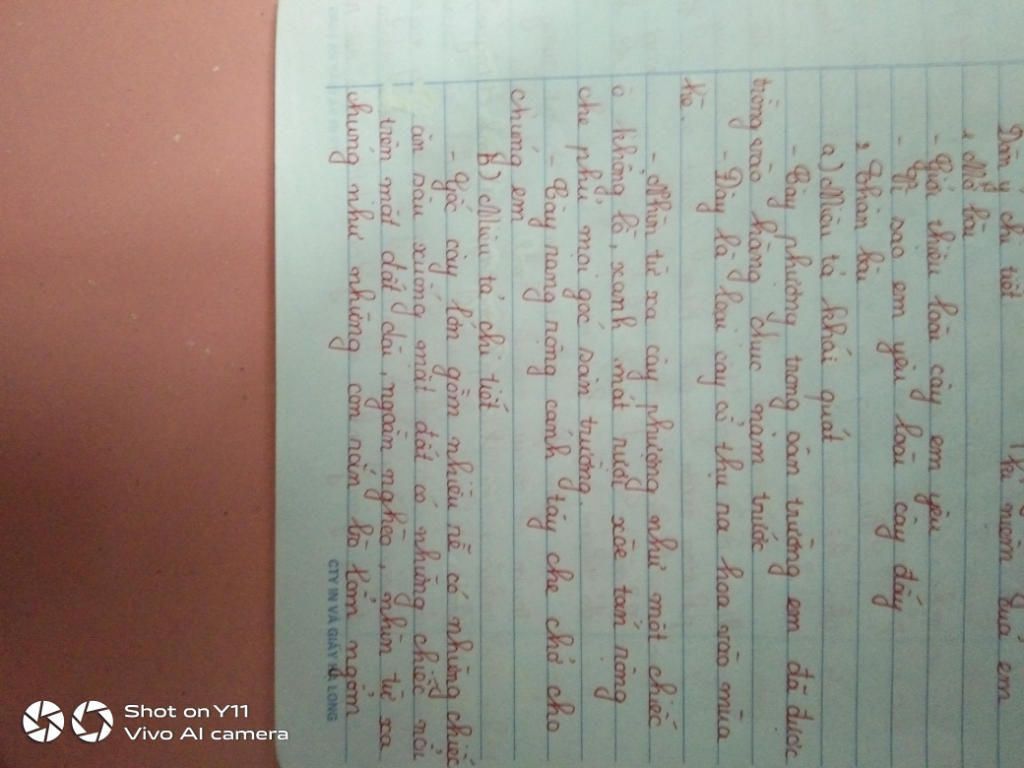 Dàn ý chi tiết
Mở bài
- Giới thiệu loài cây em yêu
- Vì sao em yêu loài cây đấy
2, Thân bài
a) Miêu tả khái quát
- Cây phượng trong sân trường em đã được
trồng vào hàng chục năm trước
- Đây là loại cây cổ thụ ra hoa vào mùa
hè.
- Nhìn từ xa cây phượng như một chiếc
ô khổng lồ, xanh mát rượi xòe tán rộng
che phủ mọi góc sân trường.
- Cây rang rộng cánh tay che chở cho
chúng em
b) Miêu tả chi tiết
- Gốc cây lớn gồm nhiều rễ có những chiếc
ăn sâu xuống mặt đất có những chiếc nổi
trên mặt đất dài, ngoằn nghèo, nhìn từ xa
chúng như những con rắn bò lổm ngổm
CTY IN VÀ GIẤY HẠ LONG
Shot on Y11
Vivo AI camera